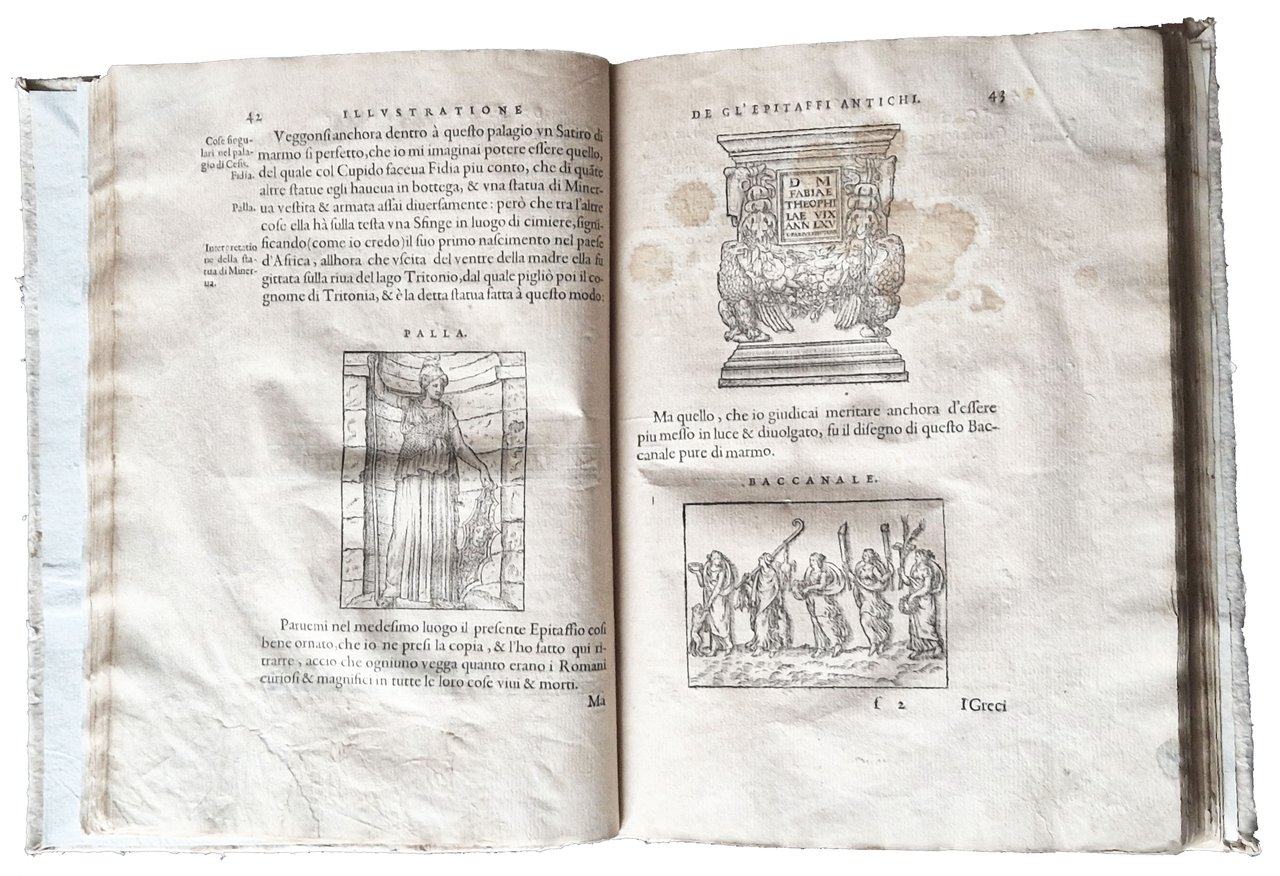 42
ILLVSTRATIONE
Cose singu-
lari nel pala-
gio di Cesis.
Fidia.
Veggonsi anchora dentro à questo palagio vn Satiro di
marmo si perfetto, che io mi imaginai potere essere quello,
del quale col Cupido faceua Fidia piu conto, che di quāte
altre statue egli haueua in bottega, & vna statua di Miner-
Palla.
ua vestita & armata assai diuersamente: però che tra l'altre
cose ella hà sulla testa vna Sfinge in luogo di cimiere, signi-
Interpretatio
ne della sta-
tua di Miner-
ua.
ficando (come io credo) il suo primo nascimento nel paese
d'Africa, allhora che vscita del ventre della madre ella fu
gittata sulla riua del lago Tritonio, dal quale pigliò poi il co-
gnome di Tritonia, & è la detta statua fatta à questo modo:
PALLA.
Paruemi nel medesimo luogo il presente Epitaffio cosi
bene ornato, che io ne presi la copia, & l'ho fatto qui ri-
trarre, accio che ogniuno vegga quanto erano i Romani
curiosi & magnifici in tutte le loro cose viui & morti.
Ma
DE GL'EPITAFFI ANTICHI.
43
D M
FABIAE
THEOPHI
LAE VIX
ANN LXV
Ma quello, che io giudicai meritare anchora d'essere
piu messo in luce & diuolgato, fu il disegno di questo Bac-
canale pure di marmo.
BACCANALE.
f 2
I Greci